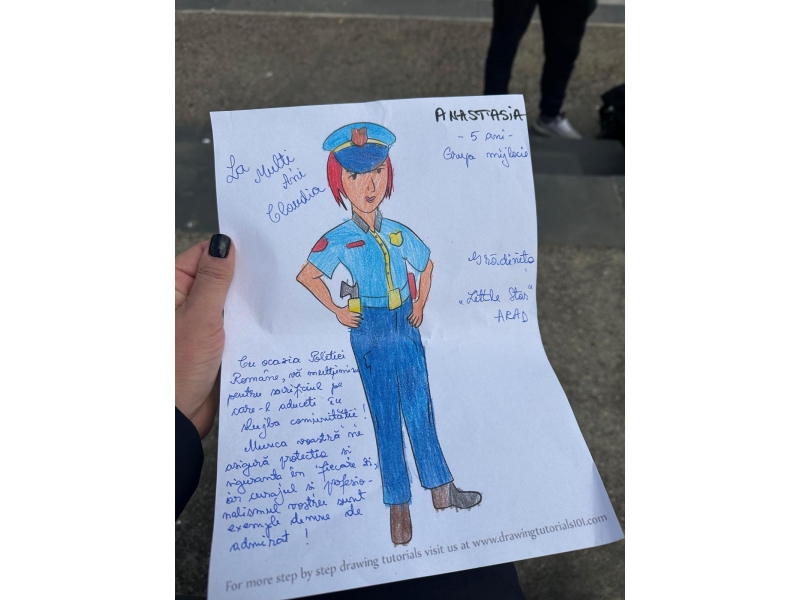 ANASTASIA
- 5 ani -
Grupa mijlocie
La
Multi
Ani
Claudia
Grădinița
"Little Star"
ARAD
Cu ocazia Poliției
Române, vă mulțumim
pentru sacrificiul pe
care-l aduceți în
slujba comunității!
Munca voastră ne
asigură protecția și
siguranța în fiecare zi,
iar curajul și profesio-
nalismul vostru sunt
exemple demne de
admirat!
For more step by step drawing tutorials visit us at www.drawingtutorials101.com